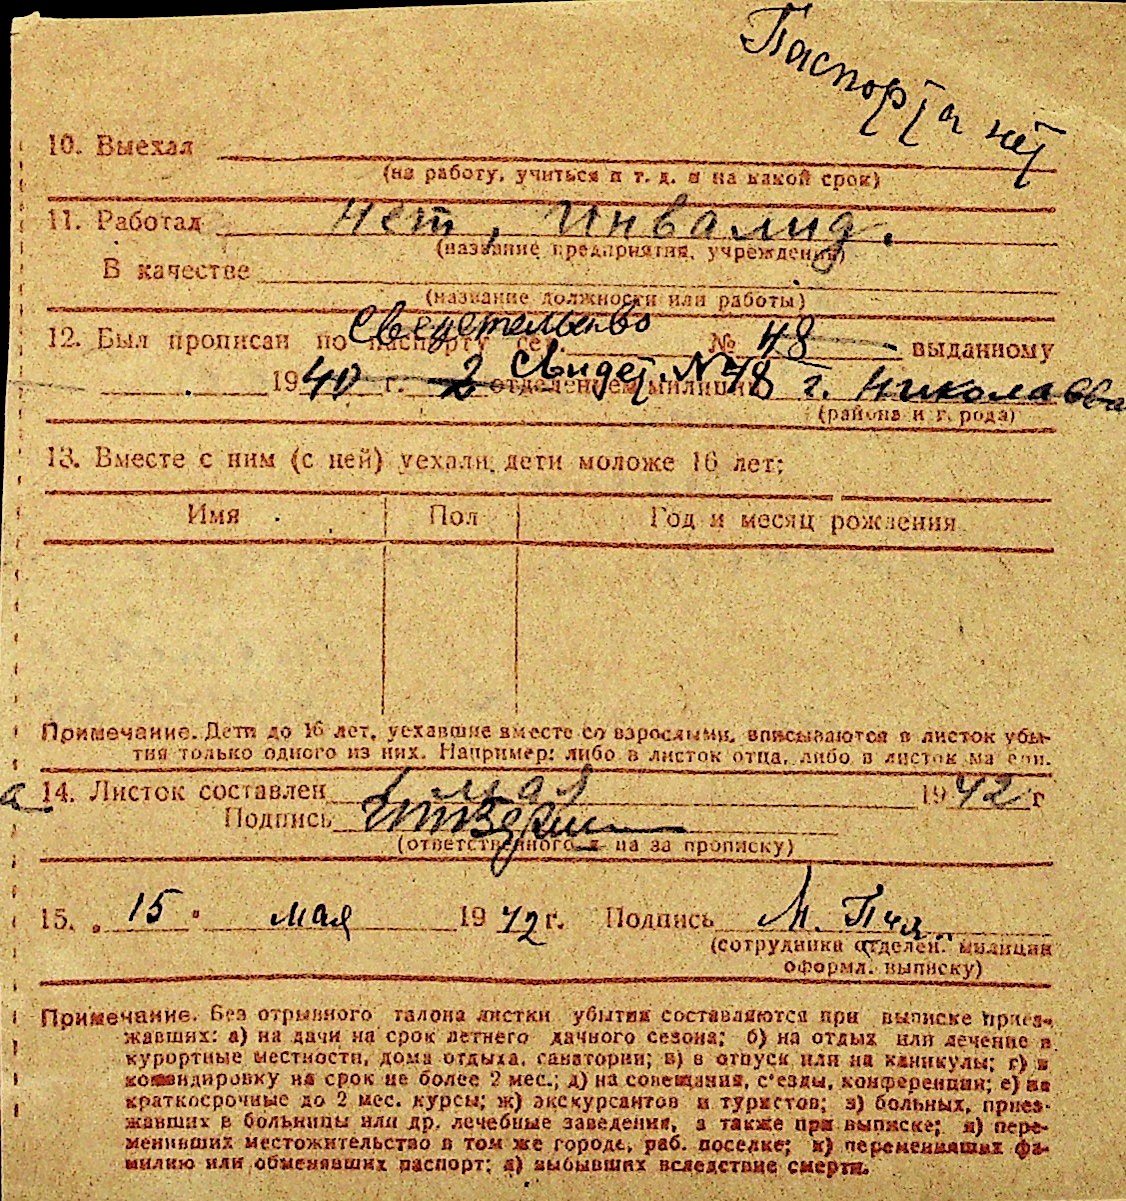 Паспорта нет
10. Выехал
(на работу, учиться и т. д. и на какой срок)
11. Работал нет, инвалид.
(название предприятия, учреждения)
В качестве
(название должности или работы)
Свидетельство
12. Был прописан по паспорту сер. № 48 выданному
1940 г. 2 отделением милиции Свидет. № 48 г. Николаева
(района и города)
13. Вместе с ним (с ней) уехали дети моложе 16 лет:
Имя Пол Год и месяц рождения
Примечание. Дети до 16 лет, уехавшие вместе со взрослыми, вписываются в листок убы-
тия только одного из них. Например: либо в листок отца, либо в листок матери.
14. Листок составлен мая 1942 г
Подпись
(ответственного л-ца за прописку)
15. „15" мая 1942 г. Подпись М.
(сотрудника отделен. милиции
оформл. выписку)
Примечание. Без отрывного талона листки убытия составляются при выписке приез-
жавших: а) на дачи на срок летнего дачного сезона; б) на отдых или лечение в
курортные местности, дома отдыха, санатории; в) в отпуск или на каникулы; г) в
командировку на срок не более 2 мес.; д) на совещания, с'езды, конференции; е) на
краткосрочные до 2 мес. курсы; ж) экскурсантов и туристов; з) больных, приез-
жавших в больницы или др. лечебные заведения, а также при выписке; и) пере-
менивших местожительство в том же городе, раб. поселке; к) переменивших фа-
милию или обменявших паспорт; л) выбывших вследствие смерти.